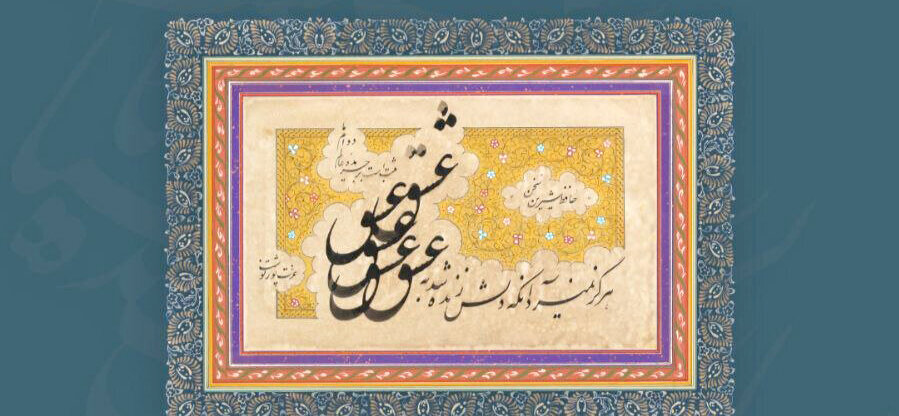 هرگز نمیرد آنکه دلش زنده شد به عشق
عشق
عشق
عشق
عشق
ثبت است بر جریده عالم
دوام ما
حافظ شیرین سخن
عزت پور نوشت